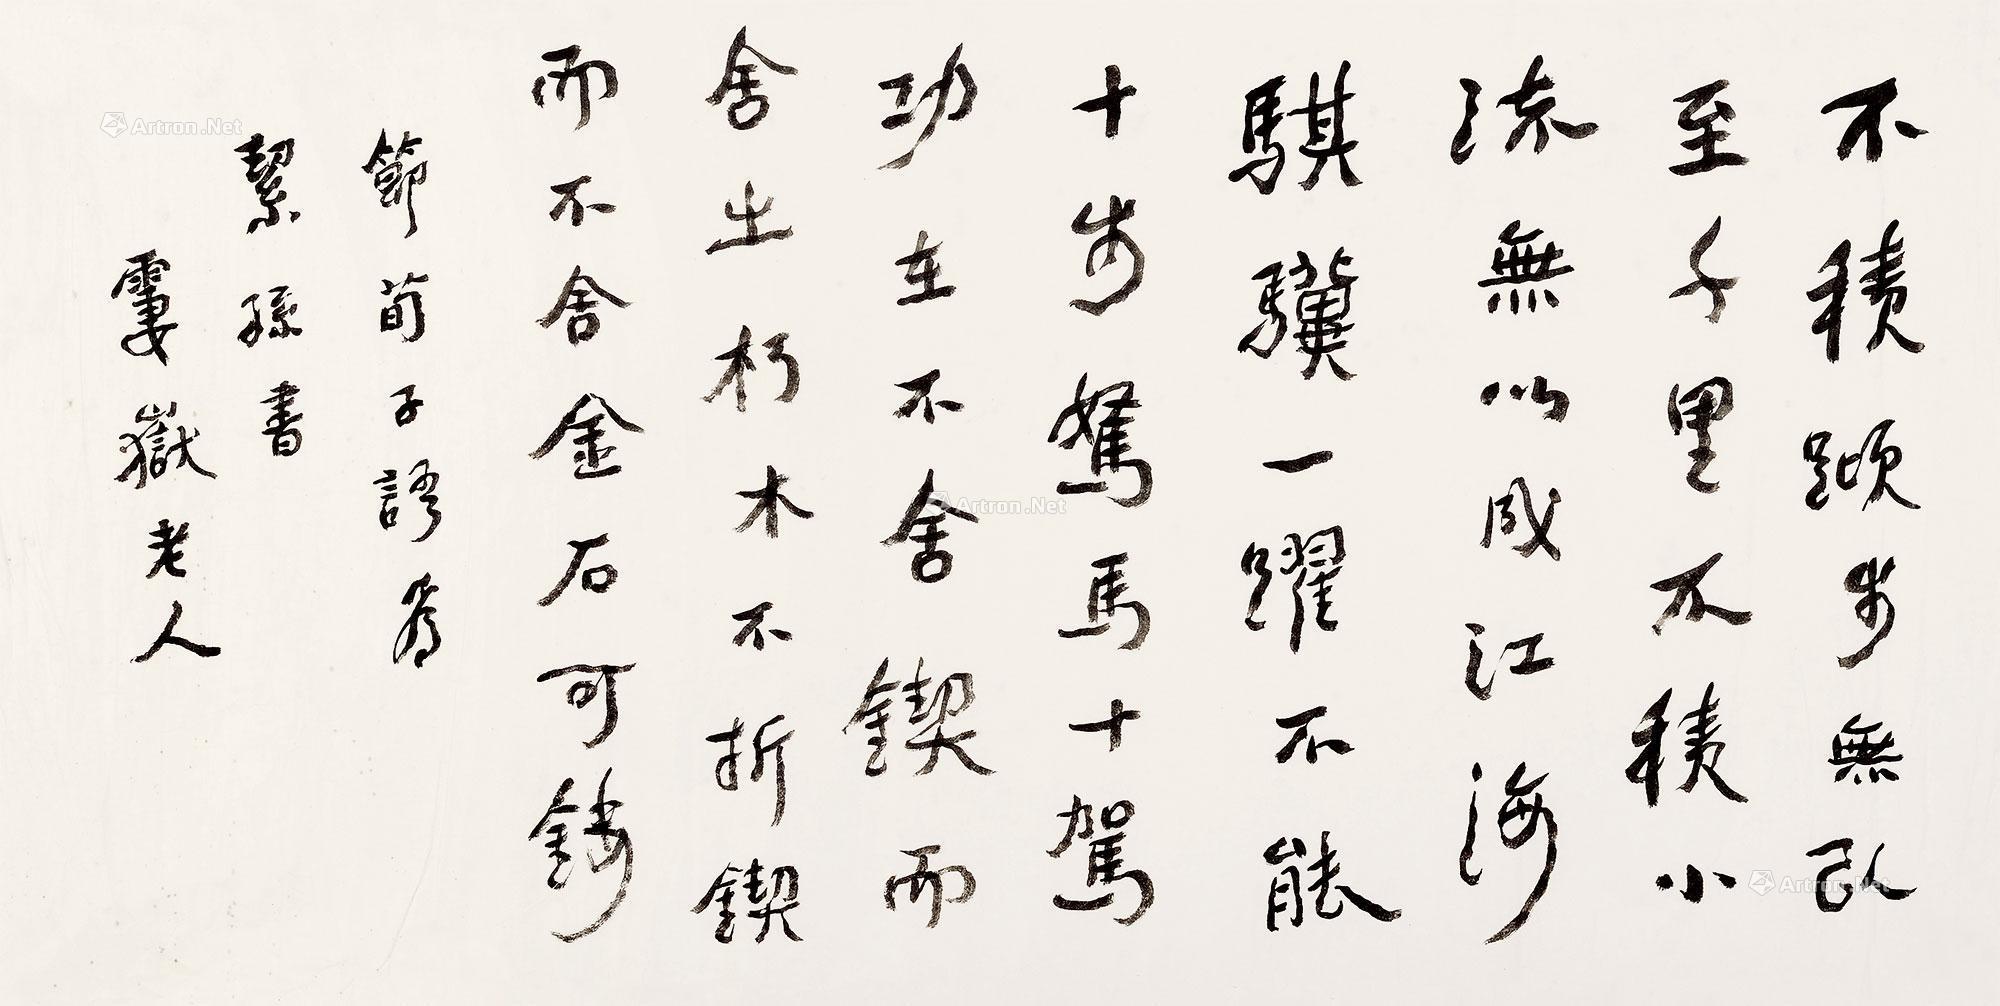 不積蹞步無以
至千里不積小
流無以成江海
騏驥一躍不能
十步駑馬十駕
功在不舍鍥而
舍之朽木不折鍥
而不舍金石可鏤
節荀子語為
絜孫書
霎嶽老人
Artron.Net
Artron.Net
Artron.Net